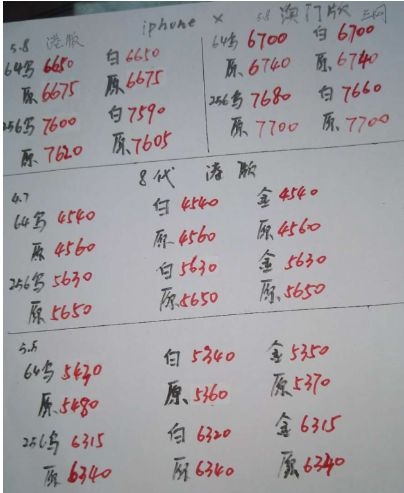 iphone x
5.8 港版
64鸟 6650 白 6650
原 6675 原 6675
256鸟 7600 白 7590
原 7620 原 7605
5.8 澳门版 三网
64鸟 6700 白 6700
原 6740 原 6740
256鸟 7680 白 7660
原 7700 原 7700
8代 港版
4.7
64鸟 4540 白 4540 金 4540
原 4560 原 4560 原 4560
256鸟 5630 白 5630 金 5630
原 5650 原 5650 原 5650
5.5
64鸟 5430 白 5340 金 5350
原 5480 原 5360 原 5370
256鸟 6315 白 6320 金 6315
原 6340 原 6340 原 6340